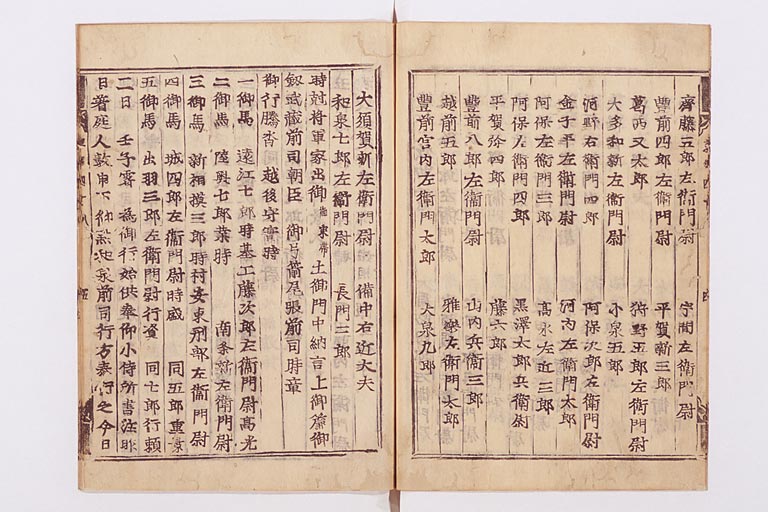 齊藤五郎左衛門尉 宇間左衛門尉
豊前四郎左衛門尉 平賀新三郎
葛西又太郎 狩野五郎左衛門尉
大多和新左衛門尉 小泉五郎
河野右衛門四郎 阿保次郎左衛門尉
金子平左衛門尉 河内左衛門太郎
阿保左衛門三郎 高水左近三郎
阿保左衛門四郎 黒澤太郎兵衛尉
平賀弥四郎 藤六郎
豊前八郎左衛門尉 山内兵衛三郎
越前五郎 雅樂左衛門太郎
豊前宮内左衛門太郎 大泉九郎
大須賀新左衛門尉 備中右近大夫
和泉七郎左衛門尉 長門三郎
時尅将軍家出御 土御門中納言上御簾御
釼武藏前司朝臣 御弓箭尾張前司時章
御行騰沓 越後守實時
一御馬 遠江七郎時基 工藤次郎左衛門尉高光
二御馬 陸奥七郎業時 南条新左衛門尉
三御馬 新相摸三郎時村 安東刑部左衛門尉
四御馬 城四郎左衛門尉時盛 同五郎重景
五御馬 出羽三郎左衛門尉行資 同七郎行頼
二日 壬子 霽 為御行始供奉仰小侍所書注昨
日着庭人数申下御點 前司行方奉行之今日